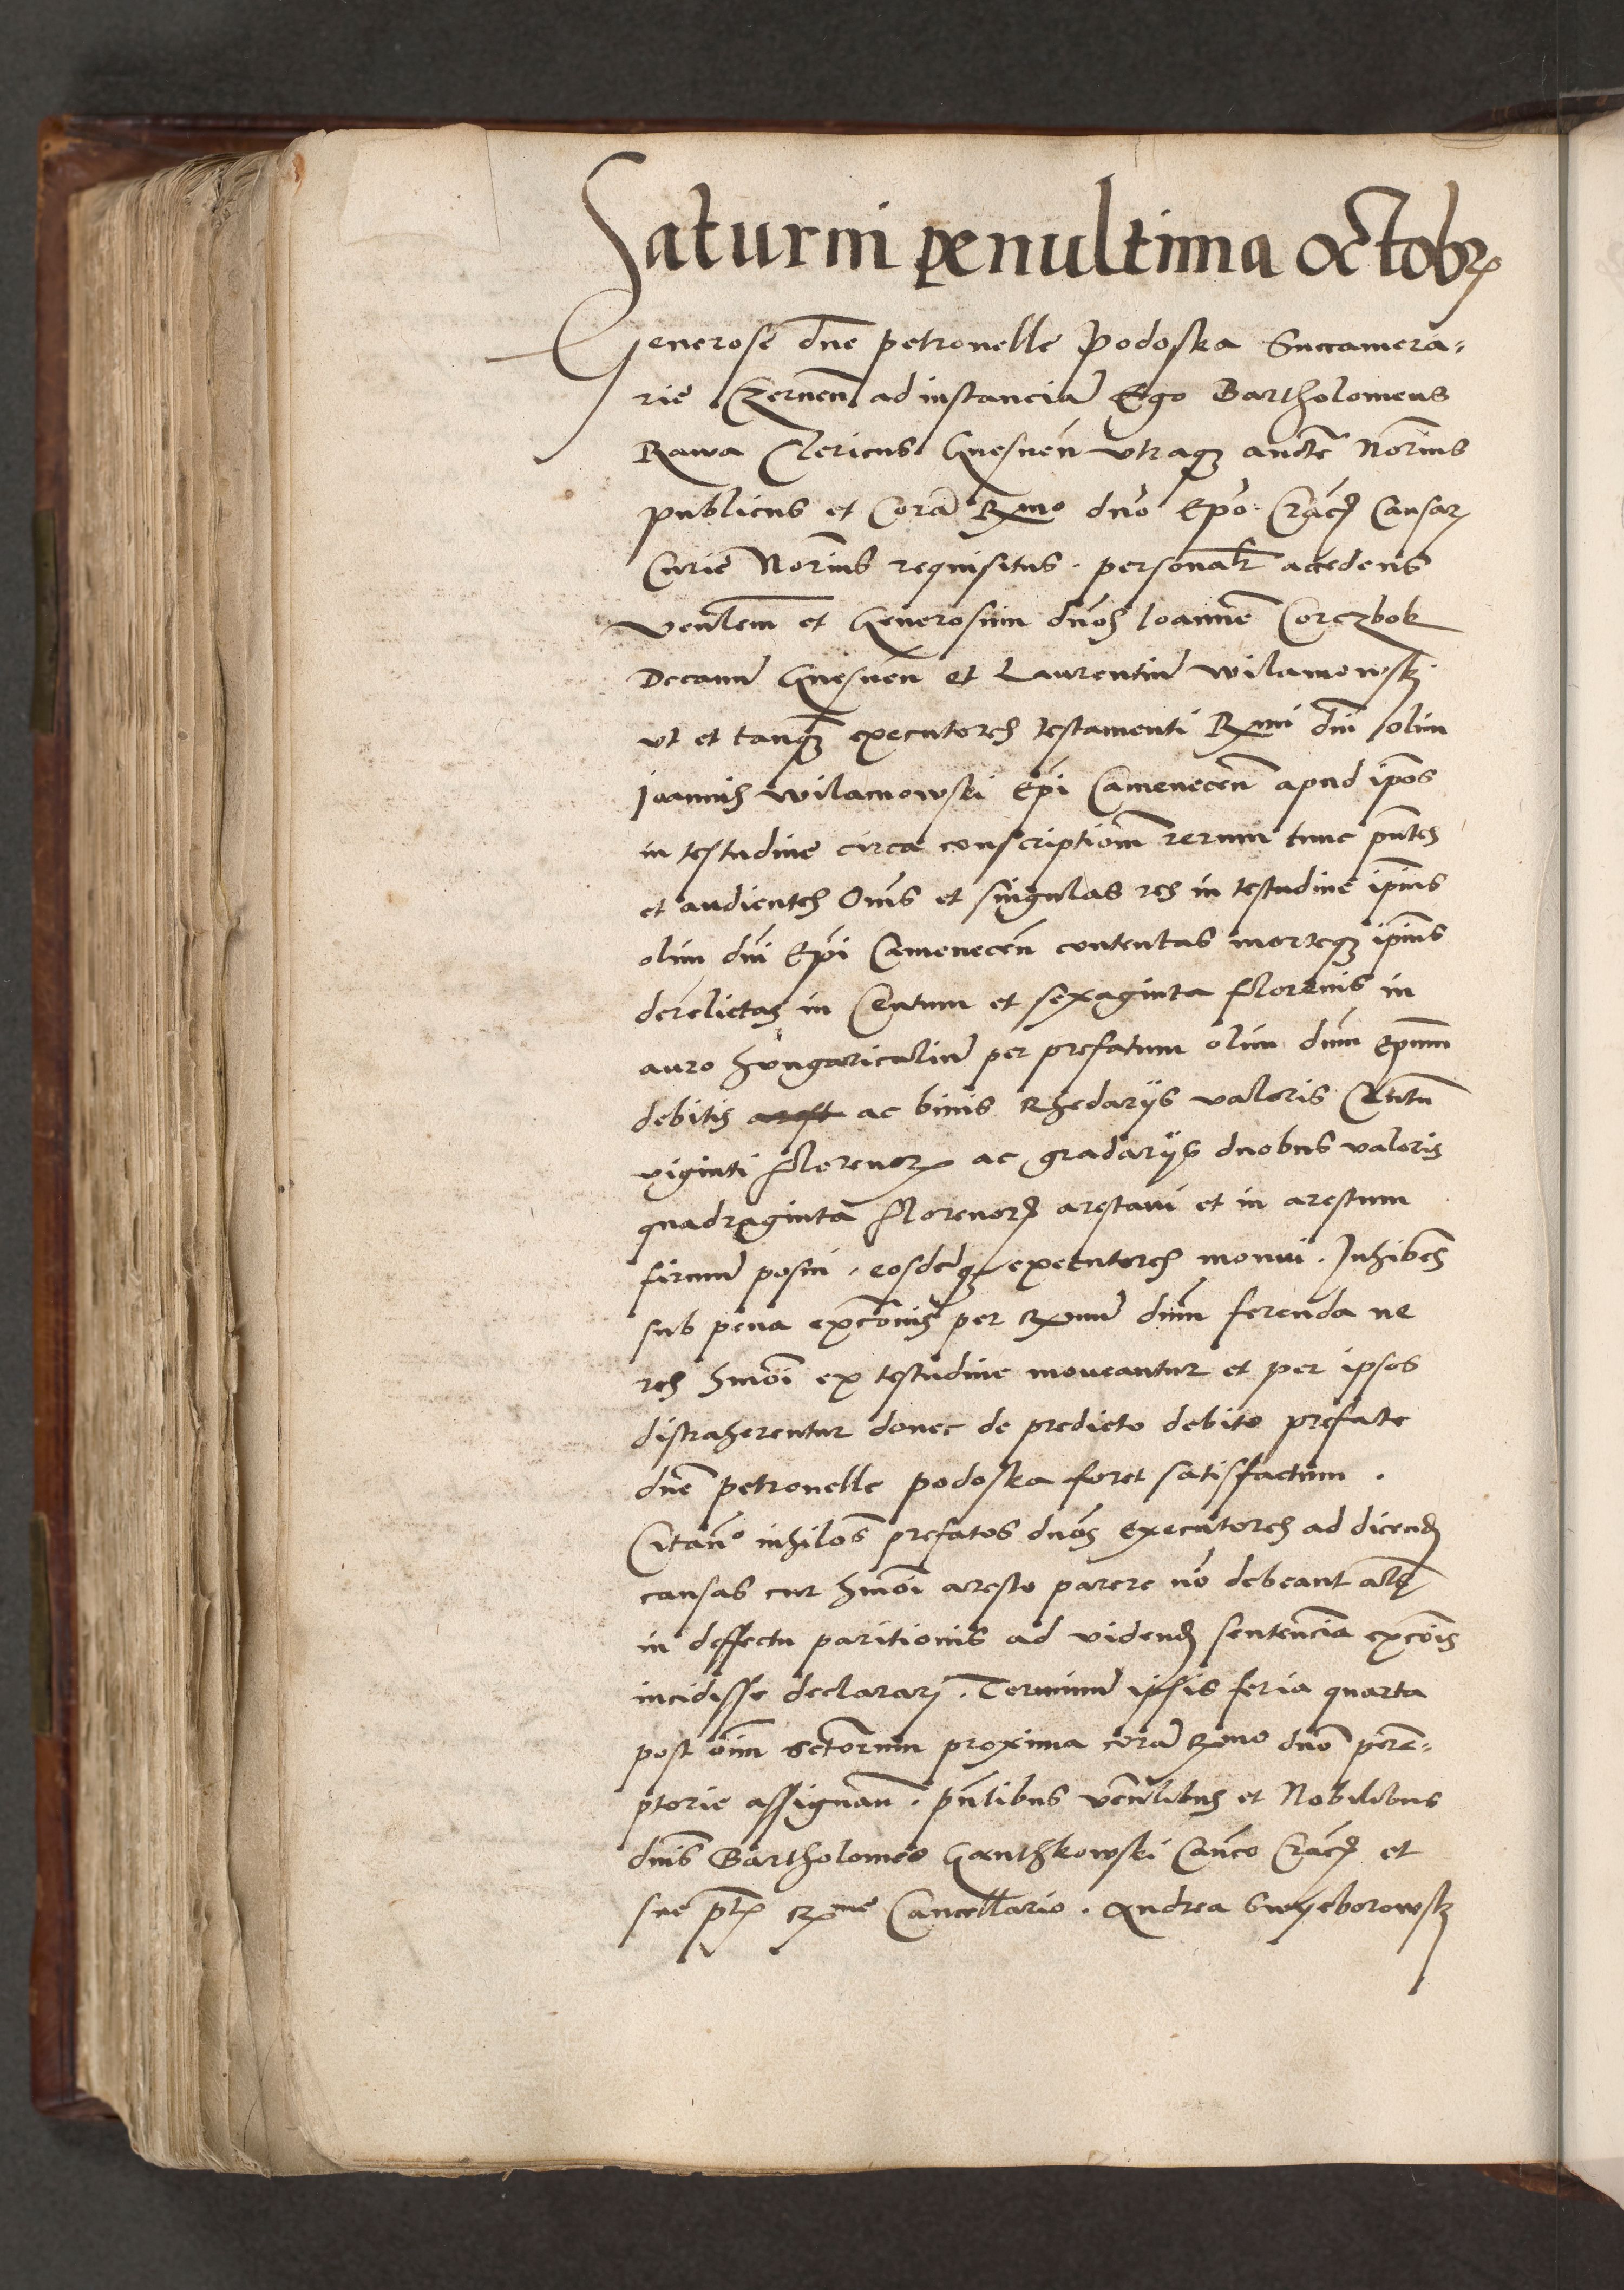 Saturni penultima octobꝛ
Generose dne petronelle Podoska Succamera-
rie Czernen ad instanciã Ego Bartholomeus
Rawa Clericus Gnesnen vtraqꝫ aucte Norius
publicus et Corã Rxmo dno Epo Cracꝫ Causaꝝ
Curie Norius requisitus . personalr accedens
venlem et Generosum dnos Joannẽ Corczbok
Decanũ Gnesnen et Laurentiũ wilamowskꝫ
vt et tanqꝫ executores testamenti Rxmi dni olim
Joannis wilamowski Epi Camenecen apud ipos
in testudine circa conscriptiom rerum tunc pntes
et audientes Oms et singulas res in testudine ipius
olim dni Epi Camenecen contentas morteqꝫ ipius
derelictas in Centum et sexaginta florenis in
auro hungaricaliũ per prefatum olim dnm Epmm
debitis arest ac binis Rhedarijs valoris Centũ
viginti florenoꝝ ac gradarijs duobus valoris
quadraginta florenoꝝ arestaui et in arestum
firmũ posui . eosdẽqꝫ executores monui . Inhibes
sub pena excoñis per Rxmũ dnm ferenda ne
res hmoi ex testudine moueantur et per ipsos
distraherentur donec de predicto debito prefate
dne petronelle podoska foret satisfactum .
Citanº inhilos prefatos dnos Executores ad dicendꝫ
causas cur hmoi aresto parere nõ debeant als
in deffectu paritionis ad videndꝫ sentencia excois
incidisse declararj . Terminũ ipsis feria quarta
post oim sctorum proxima corã Rxmo dno perẽ-
ptorie assignan . pntibus venlibus et Nobilibus
dnis Bartholomeo Ganthkowski Canco Cracꝫ et
sue pt Rxme Cancellario . Andrea Swyeborowskꝫ